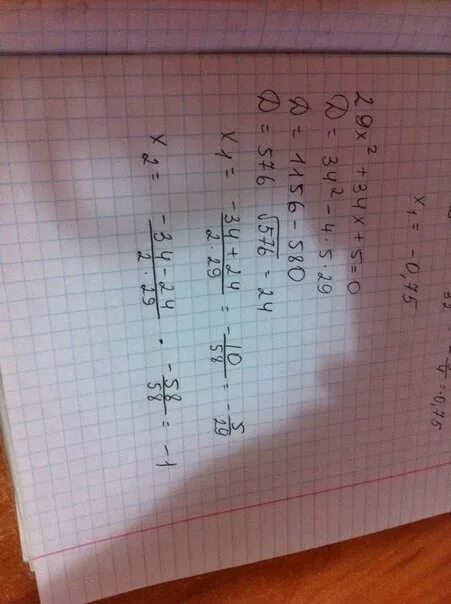 x₁ = -0,75
29x² + 34x + 5 = 0
D = 34² - 4 · 5 · 29
D = 1156 - 580
D = 576 √576 = 24
x₁ = (-34 + 24)/(2 · 29) = -10/58 = -5/29
x₂ = (-34 - 24)/(2 · 29) · -58/58 = -1